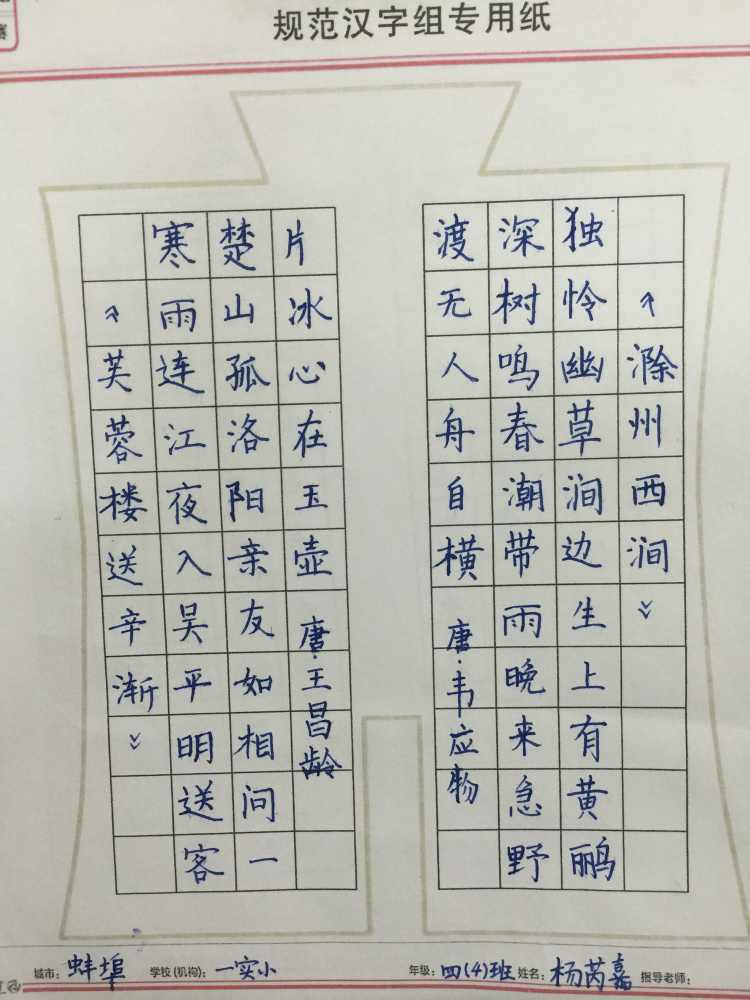 规范汉字组专用纸
《滁州西涧》
独怜幽草涧边生上有黄鹂
深树鸣春潮带雨晚来急野
渡无人舟自横 唐·韦应物
《芙蓉楼送辛渐》
寒雨连江夜入吴平明送客
楚山孤洛阳亲友如相问一
片冰心在玉壶 唐·王昌龄
城市：蚌埠 学校(机构)：一实小 年级：四(4)班 姓名：杨芮嘉 指导老师：